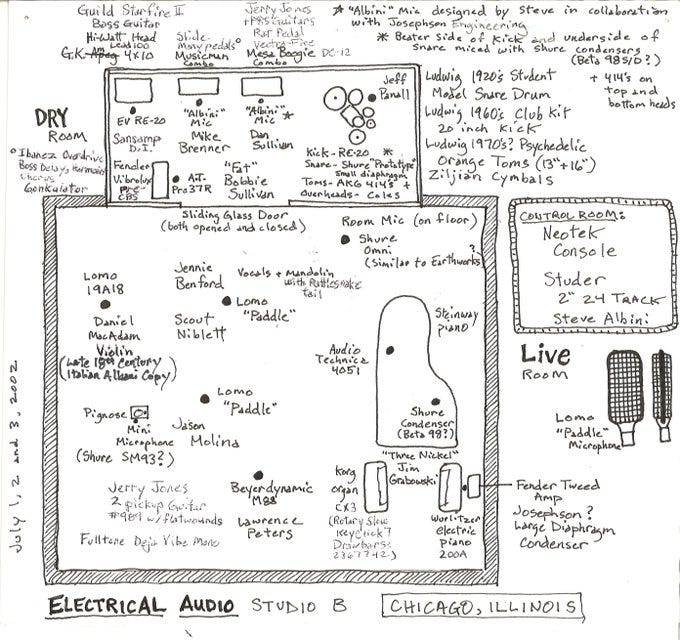 Guild Starfire II
Bass Guitar
Hi-Watt Head
Lead 100
G.K. 4x10
Slide
Many pedals
Musicman
Combo
Jerry Jones
Guitars
Rat Pedal
Mesa Boogie DC-12
Combo
* "Albini" Mic designed by Steve in collaboration
with Josephson Engineering
* Beater side of Kick and underside of
snare miced with shure condensers
(Beta 98S/D?)
+ 414's on
top and
bottom heads
DRY
ROOM
EV RE-20
"Albini"
Mic
"Albini" *
Mic
Jeff
Panall
Sansamp
D.I.
Mike
Brenner
Dan
Sullivan
Kick - RE-20 *
Snare - Shure "Prototype"
Small diaphragm
Toms - AKG 414's +
Overheads - Coles
Fender
Vibrolux
Pre-
CBS
A.T.
Pro37R
"Fat"
Bobbie
Sullivan
Ibanez Overdrive
Boss Delay, Harmonist
Chorus
Gonkulator
Ludwig 1920's Student
Model Snare Drum
Ludwig 1960's Club Kit
20 inch Kick
Ludwig 1970's? Psychedelic
Orange Toms (13"+16")
Ziljian Cymbals
Sliding Glass Door
(both opened and closed)
Room Mic (on floor)
Shure
Omni ?
(Similar to Earthworks)
CONTROL ROOM:
Neotek
Console
Studer
2" 24 TRACK
Steve Albini
Lomo
19A18
Daniel
MacAdam
Violin
(Late 18th Century
Italian Albani Copy)
Jennie
Benford
Vocals + Mandolin
with Rattlesnake
tail
Lomo
"Paddle"
Scout
Niblett
Steinway
piano
Audio
Technica
4051
Shure
Condenser
(Beta 98?)
Live
ROOM
Lomo
"Paddle"
Microphone
Lomo
"Paddle"
Pignose
Mini
Microphone
(Shure SM93?)
Jason
Molina
Jerry Jones
2 pickup Guitar
#989 w/flatwounds
Fulltone Deja Vibe Mono
Beyerdynamic
M88
Lawrence
Peters
"Three Nickel"
Jim
Grabowski
Korg
organ
CX3
(Rotary Slow
Keyclick 7
Drawbars:
Wurlitzer
electric
piano
200A
Fender Tweed
Amp
Josephson?
Large Diaphragm
Condenser
July 1, 2 and 3, 2002
ELECTRICAL AUDIO STUDIO B
CHICAGO, ILLINOIS